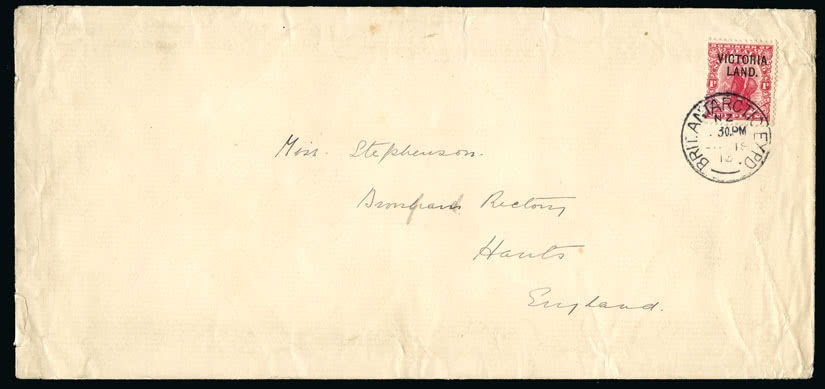 VICTORIA
LAND.
1D 1D
BRIT. ANTARCTIC EXPD.
N Z
30.PM
18
Miss. Stephenson.
Rectory
Hants
England.